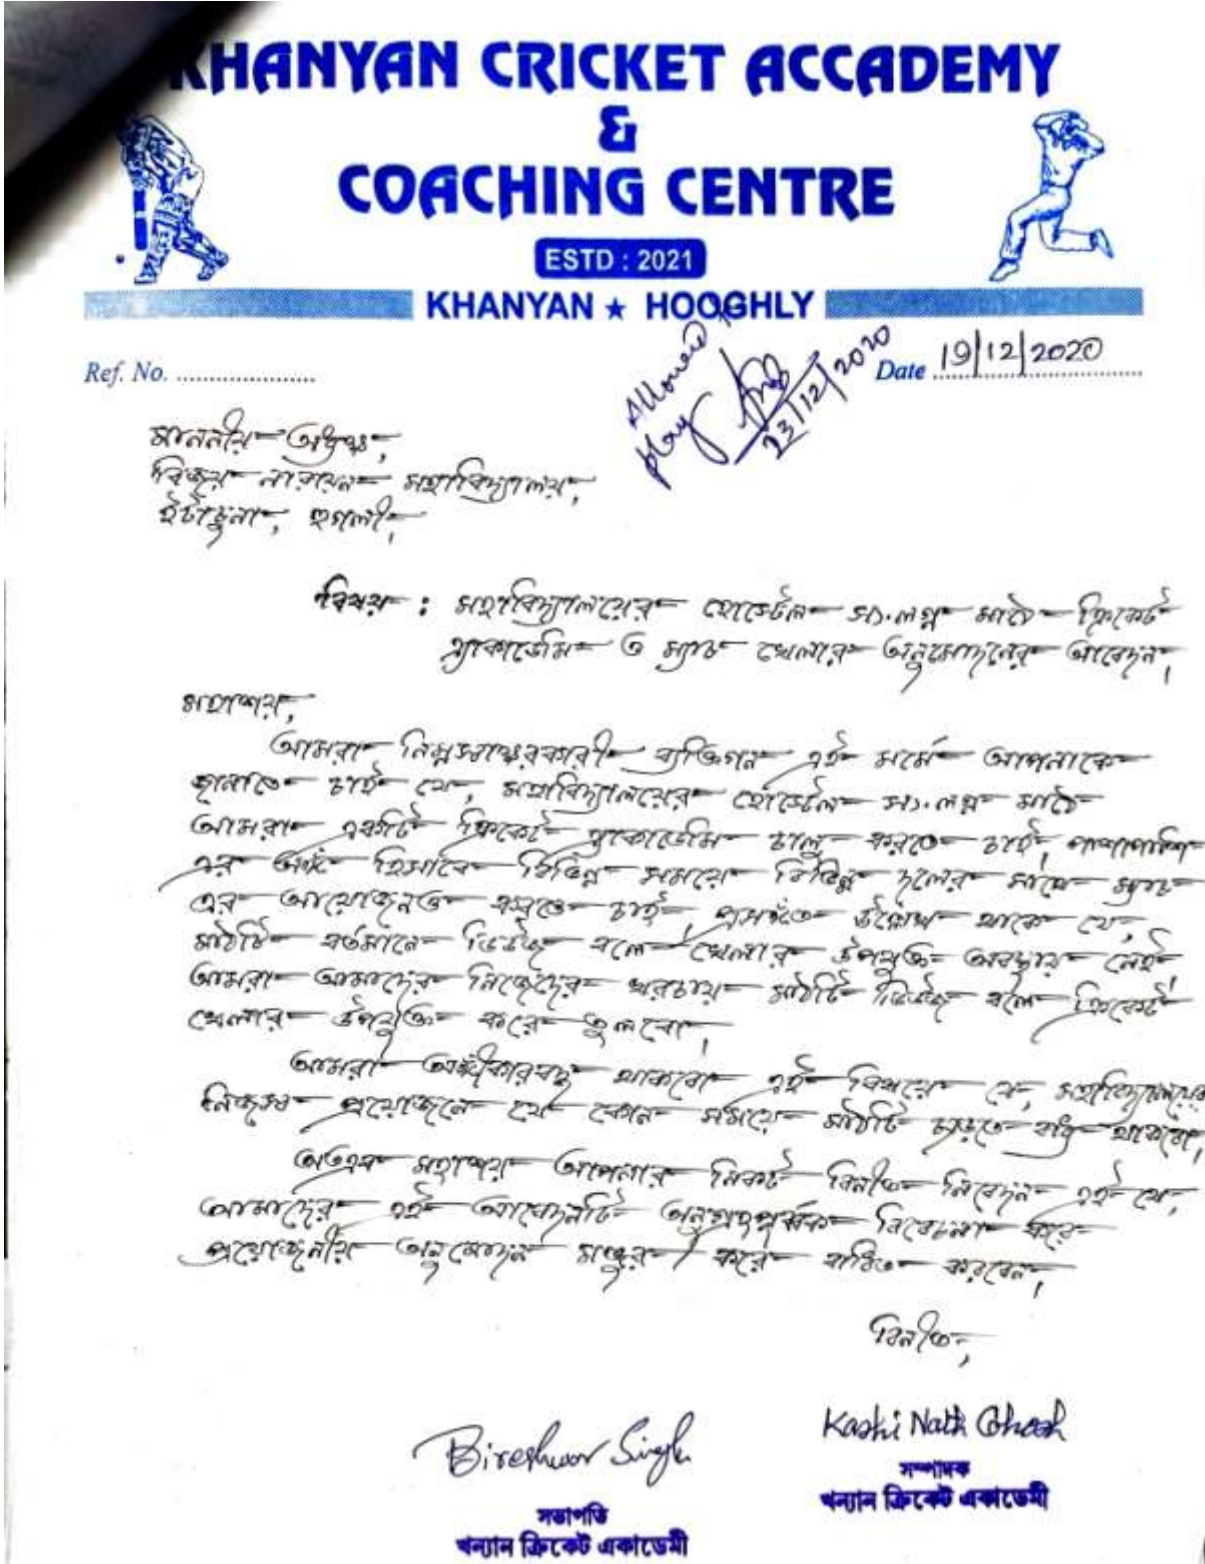 KHANYAN CRICKET ACCADEMY
&
COACHING CENTRE
ESTD : 2021
KHANYAN ★ HOOGHLY
Ref. No. ....................
Date 19/12/2020
Allowed to
play
23/12/2020
মাননীয় অধ্যক্ষ,
বিজয় নারায়ন মহাবিদ্যালয়,
ইটাচুনা, হুগলী,
বিষয় : মহাবিদ্যালয়ের হোস্টেল সংলগ্ন মাঠে ক্রিকেট
এ্যাকাডেমি ও ম্যাচ খেলার অনুমোদনের আবেদন,
মহাশয়,
আমরা নিম্নস্বাক্ষরকারী ব্যক্তিগন এই মর্মে আপনাকে
জানাতে চাই যে, মহাবিদ্যালয়ের হোস্টেল সংলগ্ন মাঠে
আমরা একটি ক্রিকেট এ্যাকাডেমি চালু করতে চাই, পাশাপাশি
এর অঙ্গ হিসাবে বিভিন্ন সময়ে বিভিন্ন দলের সাথে ম্যাচ
এর আয়োজনও করতে চাই, প্রসঙ্গত উল্লেখ থাকে যে,
মাঠটি বর্তমানে ডিউজ বলে খেলার উপযুক্ত অবস্থায় নেই,
আমরা আমাদের নিজেদের খরচায় মাঠটি ডিউজ বলে ক্রিকেট
খেলার উপযুক্ত করে তুলবো,
আমরা অঙ্গীকারবদ্ধ থাকবো এই বিষয়ে যে, মহাবিদ্যালয়ের
নিজস্ব প্রয়োজনে যে কোন সময়ে মাঠটি ছাড়তে বাধ্য থাকবো,
অতএব মহাশয় আপনার নিকট বিনীত নিবেদন এই যে,
আমাদের এই আবেদনটি অনুগ্রহপূর্বক বিবেচনা করে
প্রয়োজনীয় অনুমোদন মঞ্জুর করে বাধিত করবেন,
বিনীত,
Bireshwar Singh
সভাপতি
খন্যান ক্রিকেট একাডেমী
Kashi Nath Ghosh
সম্পাদক
খন্যান ক্রিকেট একাডেমী